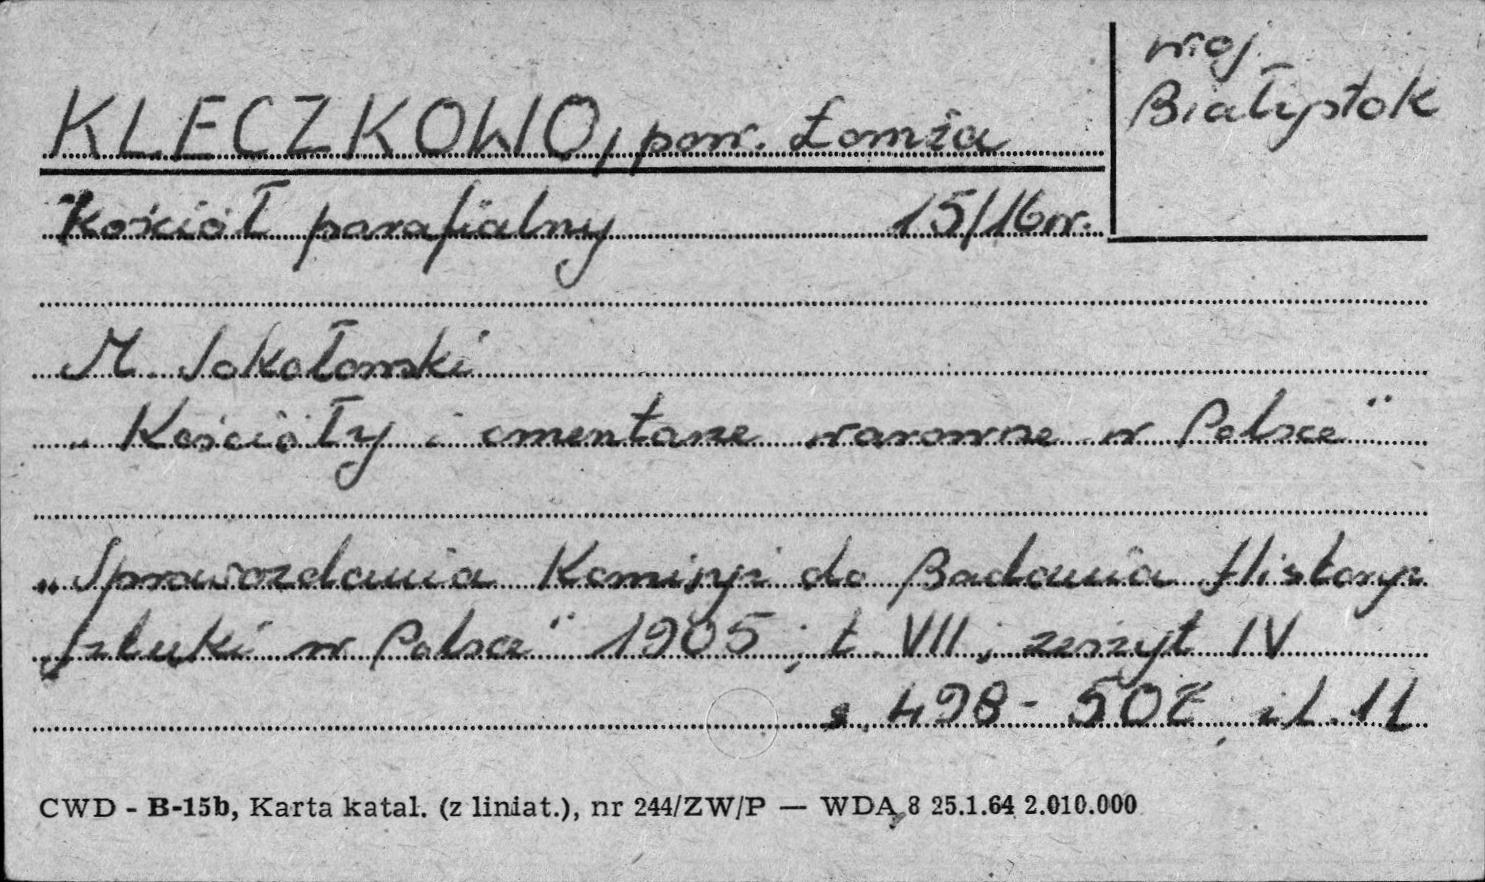 woj.
Białystok
KLECZKOWO, pow. Łomża
Kościół parafialny 15/16 w.
M. Sokołowski
„Kościoły i cmentarze warowne w Polsce"
„Sprawozdania Komisji do Badania Historyi
Sztuki w Polsce" 1905; t. VII; zeszyt IV
s. 498-507, il. 11
CWD - B-15b, Karta katal. (z liniat.), nr 244/ZW/P — WDA 8 25.1.64 2.010.000